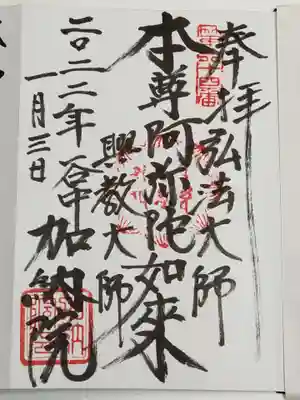 奉拝
弘法大師
本尊阿弥陀如来
興教大師
二〇二二年
一月三日
谷中
加納院